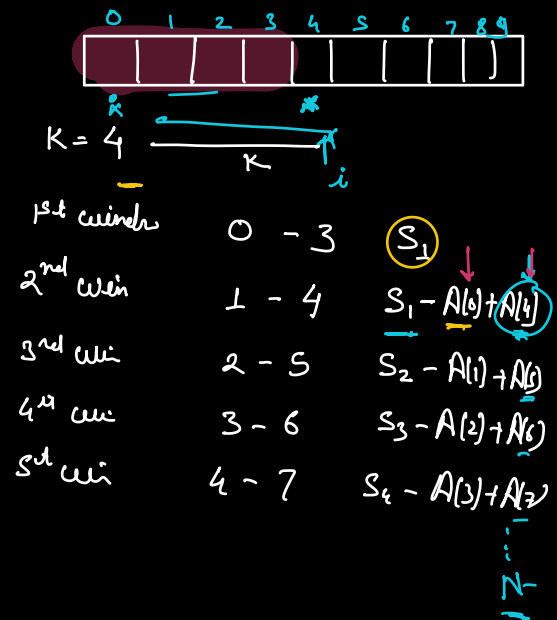 0 1 2 3 4 5 6 7 8 9
K = 4
K
i
1st window 0 - 3 S1
2nd win 1 - 4 S1 - A[0] + A[4]
3rd win 2 - 5 S2 - A[1] + A[5]
4th win 3 - 6 S3 - A[2] + A[6]
5th win 4 - 7 S4 - A[3] + A[7]
N-